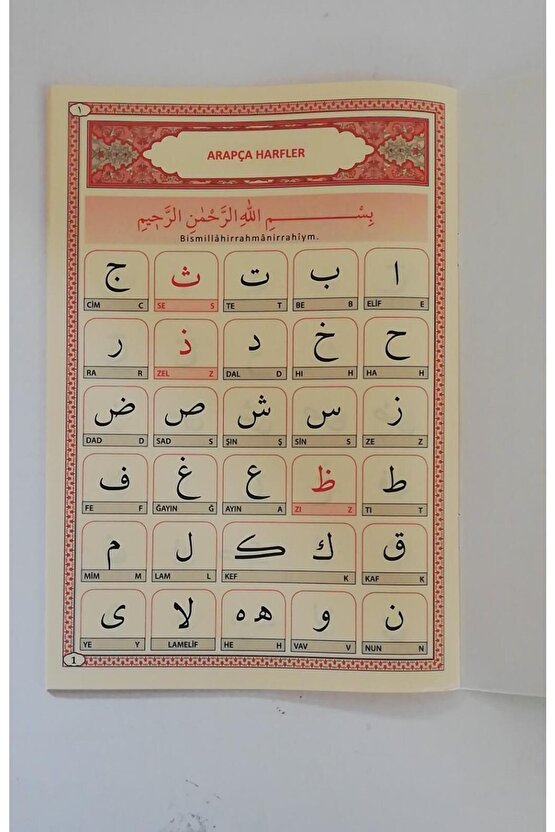 ١
ARAPÇA HARFLER
بِسْــــــــمِ اللهِ الرَّحْمٰنِ الرَّحٖيمِ
Bismillâhirrahmânirrahîym.
ا ب ت ث ج
ELİF E BE B TE T SE S CİM C
ح خ د ذ ر
HA H HI H DAL D ZEL Z RA R
ز س ش ص ض
ZE Z SİN S ŞIN Ş SAD S DAD D
ط ظ ع غ ف
TI T ZI Z AYIN A ĞAYIN Ğ FE F
ق ك ڪ ل م
KAF K KEF K LAM L MİM M
ن و ه ه لا ى
NUN N VAV V HE H LAMELİF YE Y
1